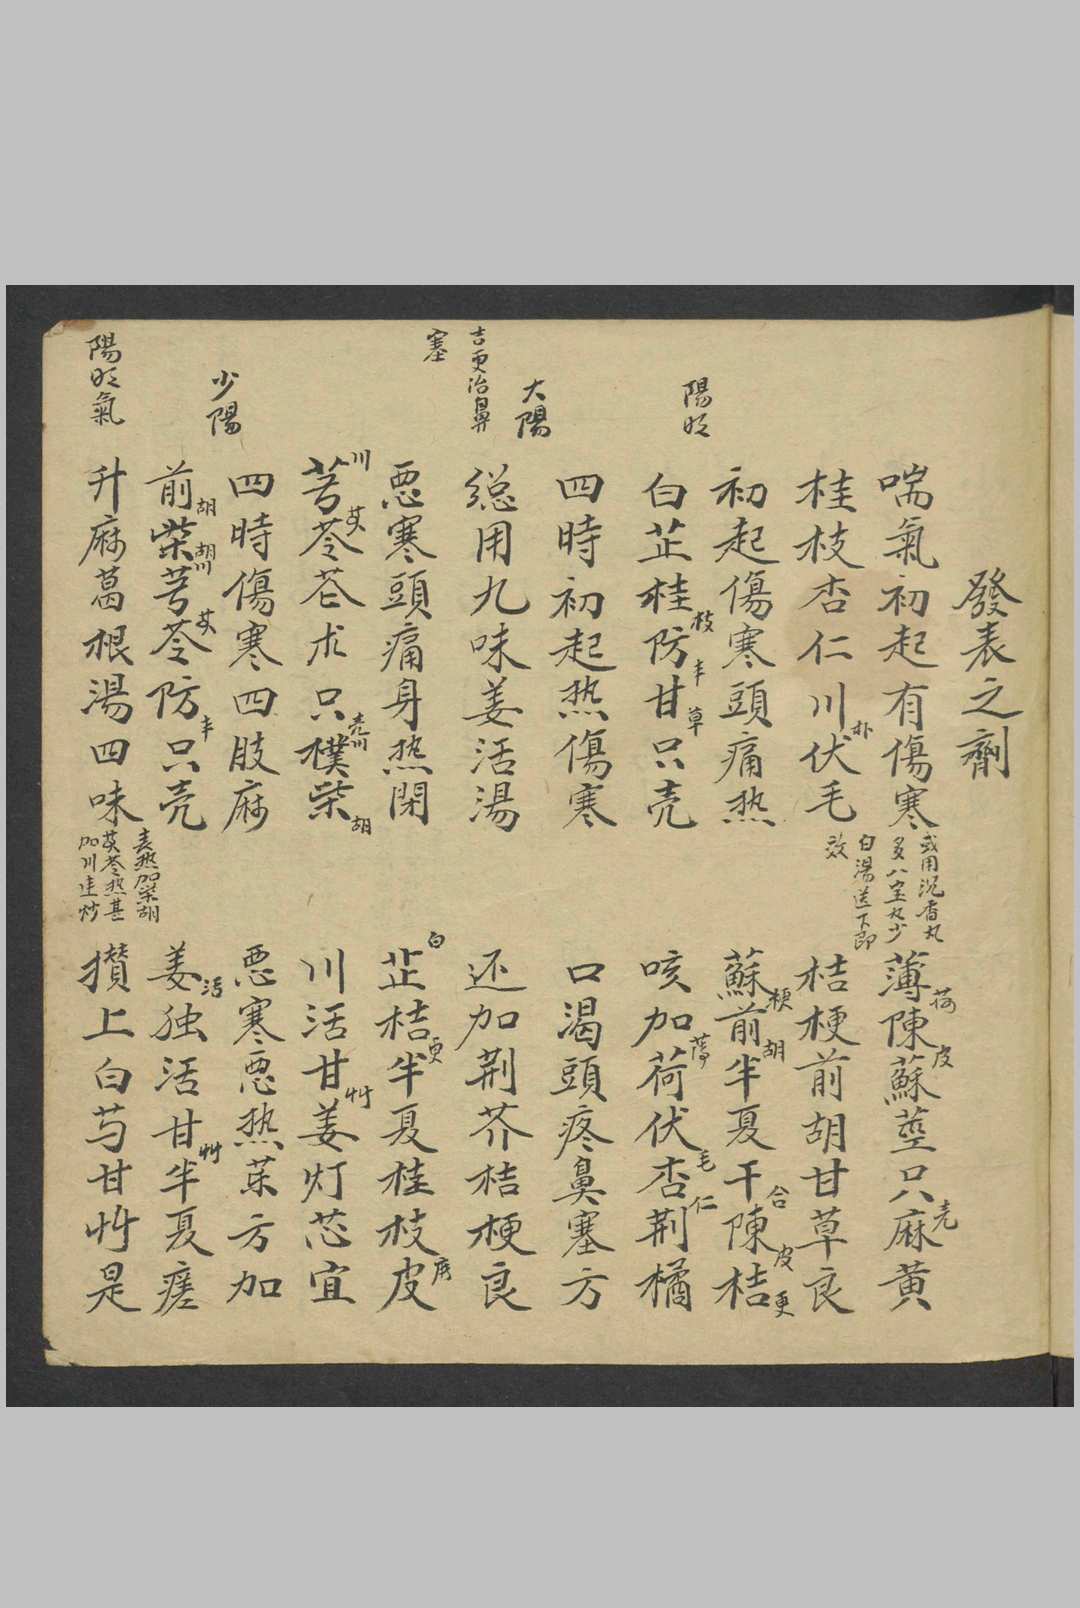 發表之劑
喘氣初起有傷寒
或用沉香丸
多八宝丸少
白湯送下即
效
薄荷陳皮蘇莖只壳麻黄
桂枝杏仁川朴伏毛
桔梗前胡甘草良
陽明
初起傷寒頭痛热
蘇梗前胡半夏干合陳皮桔更
白芷桂枝防丰甘草只壳
咳加荷薄伏毛杏仁荆橘
大陽
四時初起热傷寒
口渴頭疼鼻塞方
吉更治鼻
塞
總用九味姜活湯
还加荆芥桔梗良
悪寒頭痛身热閉
白芷桔更半夏桂枝皮
川芎芩苍术只壳川樸柴胡
川活甘艸姜灯芯宜
少陽
四時傷寒四肢麻
悪寒悪热茱方加
前胡柴胡川芎芩防丰只壳
姜活独活甘艸半夏瘥
陽明氣
升麻葛根湯四味
表热加柴胡
芩热甚
攢上白芍甘艸是